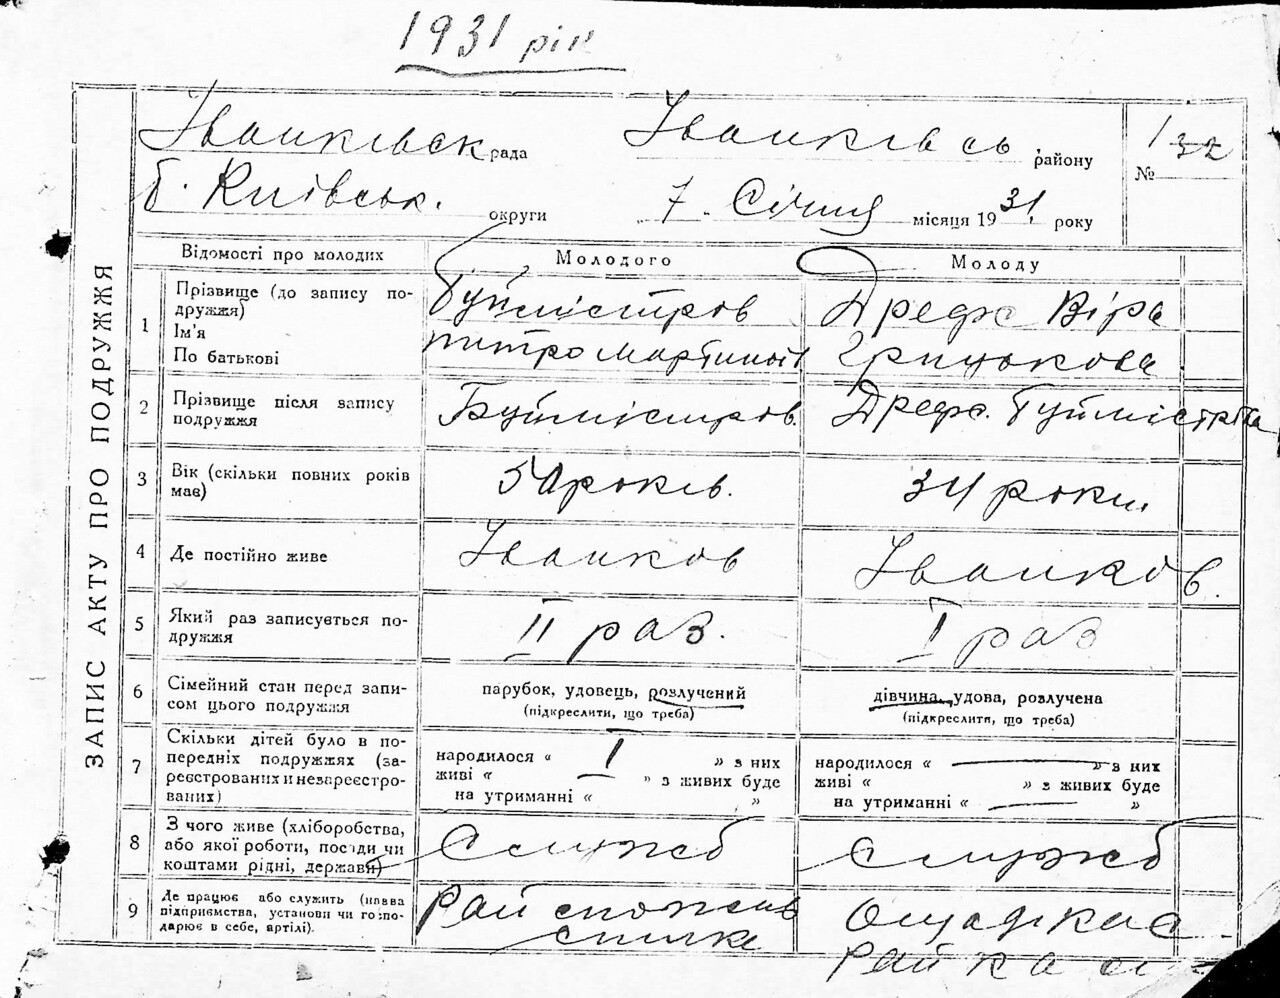 1931 рік
ЗАПИС АКТУ ПРО ПОДРУЖЖЯ
Іванківськ рада Іванківсь району
№ 132
б. Київськ. округи „ 7 „ Січня місяця 1931 року
Відомості про молодих Молодого Молоду
1 Прізвище (до запису подружжя)
Ім'я
По батькові
Буймістров
Питро Мартинов
Дрефс Віра
Грицькова
2 Прізвище після запису подружжя
Буймістров.
Дрефс. Буймістрова
3 Вік (скільки повних років має)
50 років.
34 роки.
4 Де постійно живе
Іванков
Іванков.
5 Який раз записується подружжя
II раз.
I раз
6 Сімейний стан перед записом цього подружжя
парубок, удовець, розлучений
(підкреслити, що треба)
дівчина, удова, розлучена
(підкреслити, що треба)
7 Скільки дітей було в попередніх подружжях (зареєстрованих и незареєстрованих)
народилося « I » з них
живі « » з живих буде
на утриманні « »
народилося « — » з них
живі « » з живих буде
на утриманні « — »
8 З чого живе (хліборобства, або якої роботи, посади чи коштами рідні, держави)
Служб
Служб
9 Де працює або служить (назва підприємства, установи чи господарює в себе, артілі).
Рай спожив
спілка
Ощадкас
Райка